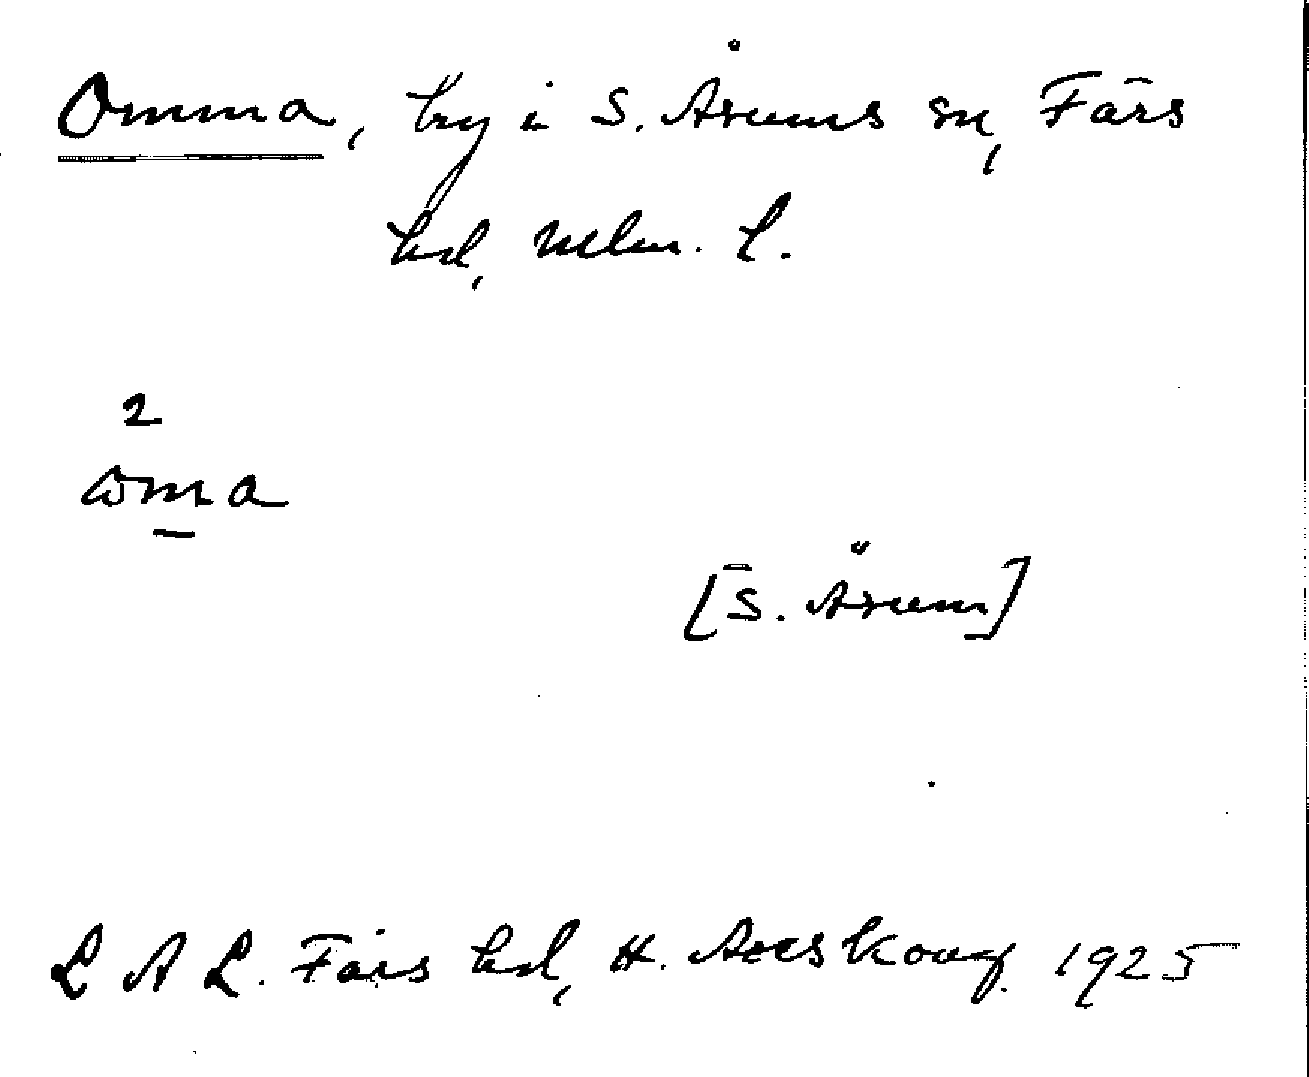 Omma, by i S. Åsums sn, Färs
hd, Mlm. L.
2
ɷma
[S. Åsum]
L A L. Färs hd, H. Areskoug 1925